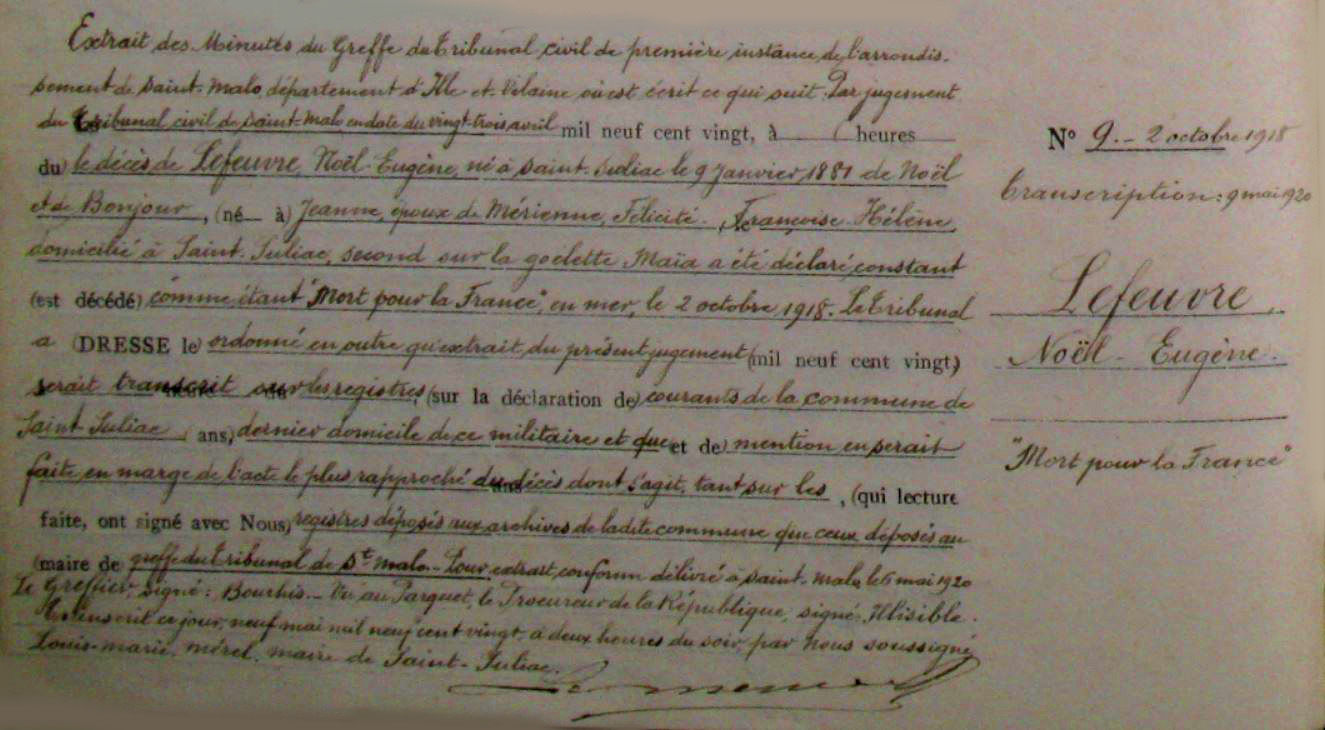 Extrait des Minutes du Greffe du Tribunal civil de première instance de l'arrondis-
sement de Saint-Malo, département d'Ille-et-Vilaine où est écrit ce qui suit. Par jugement
du Tribunal civil de Saint-Malo, en date du vingt-trois avril mil neuf cent vingt, à heures
du) le décès de Lefeuvre, Noël-Eugène, né à Saint-Suliac le 9 Janvier 1881 de Noël
et de Bonjour, (né à) Jeanne, époux de Mérienne, Félicité-Françoise-Hélène,
domicilié à Saint-Suliac, second sur la goëlette Maïa a été déclaré constant
(est décédé) comme étant "Mort pour la France", en mer, le 2 octobre 1918. Le Tribunal
a (DRESSE le) ordonné en outre qu'extrait du présent jugement (mil neuf cent vingt,)
serait transcrit sur les registres, (sur la déclaration de) courants de la commune de
Saint-Suliac (ans,) dernier domicile de ce militaire et que et de) mention en serait
faite en marge de l'acte le plus rapproché du décès dont s'agit, tant sur les , (qui lecture
faite, ont signé avec Nous,) registres déposés aux archives de ladite commune que ceux déposés au
(maire de greffe du Tribunal de St Malo.- Pour extrait conforme délivré à Saint-Malo, le 6 mai 1920
Le Greffier, signé : Bourhis.- Vu au Parquet, le Procureur de la République, signé, Illisible.
Transcrit ce jour, neuf mai mil neuf cent vingt, à deux heures du soir, par Nous soussigné
Louis-Marie, Mérel, maire de Saint-Suliac.
N° 9.- 2 octobre 1918
Transcription : 9 mai 1920
Lefeuvre,
Noël-Eugène.
"Mort pour la France"